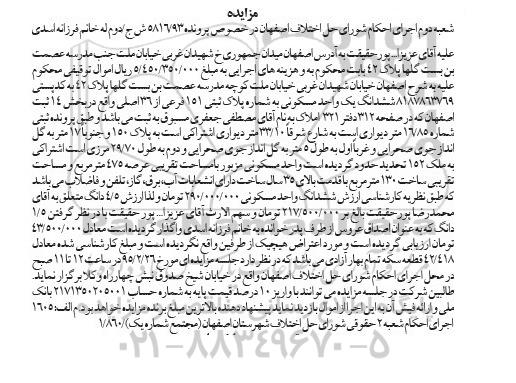 مزایده
شعبه دوم اجرای احکام شورای حل اختلاف اصفهان در خصوص پرونده ۵۸۱۶/۹۳ ش ج/دوم له خانم فرزانه اسدی
علیه آقای عزیزا... پور حقیقت به آدرس اصفهان میدان جمهوری خ شهیدان غربی خیابان ملت جنب مدرسه عصمت
بن بست گلها پلاک ۴۲ بابت محکوم به و هزینه های اجرایی به مبلغ ۵/۴۵۰/۳۵۰/۰۰۰ ریال اموال توقیفی محکوم
علیه به شرح اصفهان خیابان شهیدان غربی خیابان ملت کوچه مدرسه عصمت بن بست گلها پلاک ۴۲ به کدپستی
۸۱۸۷۸۶۳۷۶۹ ششدانگ یک واحد مسکونی به شماره پلاک ثبتی ۱۵۱ فرعی از ۳۶ اصلی واقع در بخش ۱۴ ثبت
اصفهان که در صفحه ۳۱۲ دفتر ۳۲۱ املاک به نام آقای مصطفی جعفری مسبوق به ثبت می باشد و طبق پرونده ثبتی
۱۶۸۵ متر دیواری است به شارع شرقاً ۳۳/۱۰ متر دیواری اشتراکی است به پلاک ۱۵۰ و جنوباً ۱۷ متر به گل
انداز جوی صحرایی و غرباً اول به طول ۵ متر به گل انداز جوی صحرایی و دوم به طول ۲۹/۷۰ مرزی است اشتراکی
به ملک ۱۵۲ تحدید حدود گردیده است واحد مسکونی مزبور با مساحت تقریبی عرصه ۴۷۵ متر مربع و مساحت
تقریبی ساخت ۱۳۰ متر مربع با قدمت بالای ۳۵ سال ساخت دارای انشعابات آب، برق، گاز، تلفن و فاضلاب می باشد
که طبق نظریه کارشناسی ارزش ششدانگ واحد مسکونی ۲۹۰/۰۰۰/۰۰۰ تومان و لذا ارزش ۴/۵ دانگ متعلق به آقای
محمدرضا پور حقیقت بالغ بر ۲۱۷/۵۰۰/۰۰۰ تومان و سهم الارث آقای عزیزا... پور حقیقت با در نظر گرفتن ۱/۵
دانگ که به عنوان صداق عروس از طرف پدر خوانده به خانم فرزانه اسدی واگذار گردیده است معادل ۴۳/۵۰۰/۰۰۰
تومان ارزیابی گردیده است و مورد اعتراض هیچیک از طرفین واقع نگردیده است و مبلغ کارشناسی شده معادل
۴۲/۴۱۸ قطعه سکه تمام بهار آزادی می باشد که در نظر دارد جلسه مزایده ای مورخ ۹۵/۲/۲۶ در ساعت ۱۱ تا ۱۲ صبح
در محل اجرای احکام شورای حل اختلاف اصفهان واقع در خیابان شیخ صدوق نبش چهارراه وکلا برگزار نماید
طالبین شرکت در جلسه مزایده می توانند با واریز ۱۰ درصد قیمت پایه به شماره حساب ۲۱۷۱۳۵۰۲۰۵۰۰۱ بانک
ملی و ارائه فیش آن به این اجرا از اموال بازدید نماید پیشنهاد دهنده بالاترین مبلغ برنده مزایده خواهد بود. م الف: ۱۶۰۵
اجرای احکام شعبه ۲ حقوقی شورای حل اختلاف شهرستان اصفهان (مجتمع شماره یک) /۱/۸۶۰
۰۲۱-۸۸۳۴۹۶۷۰-۵